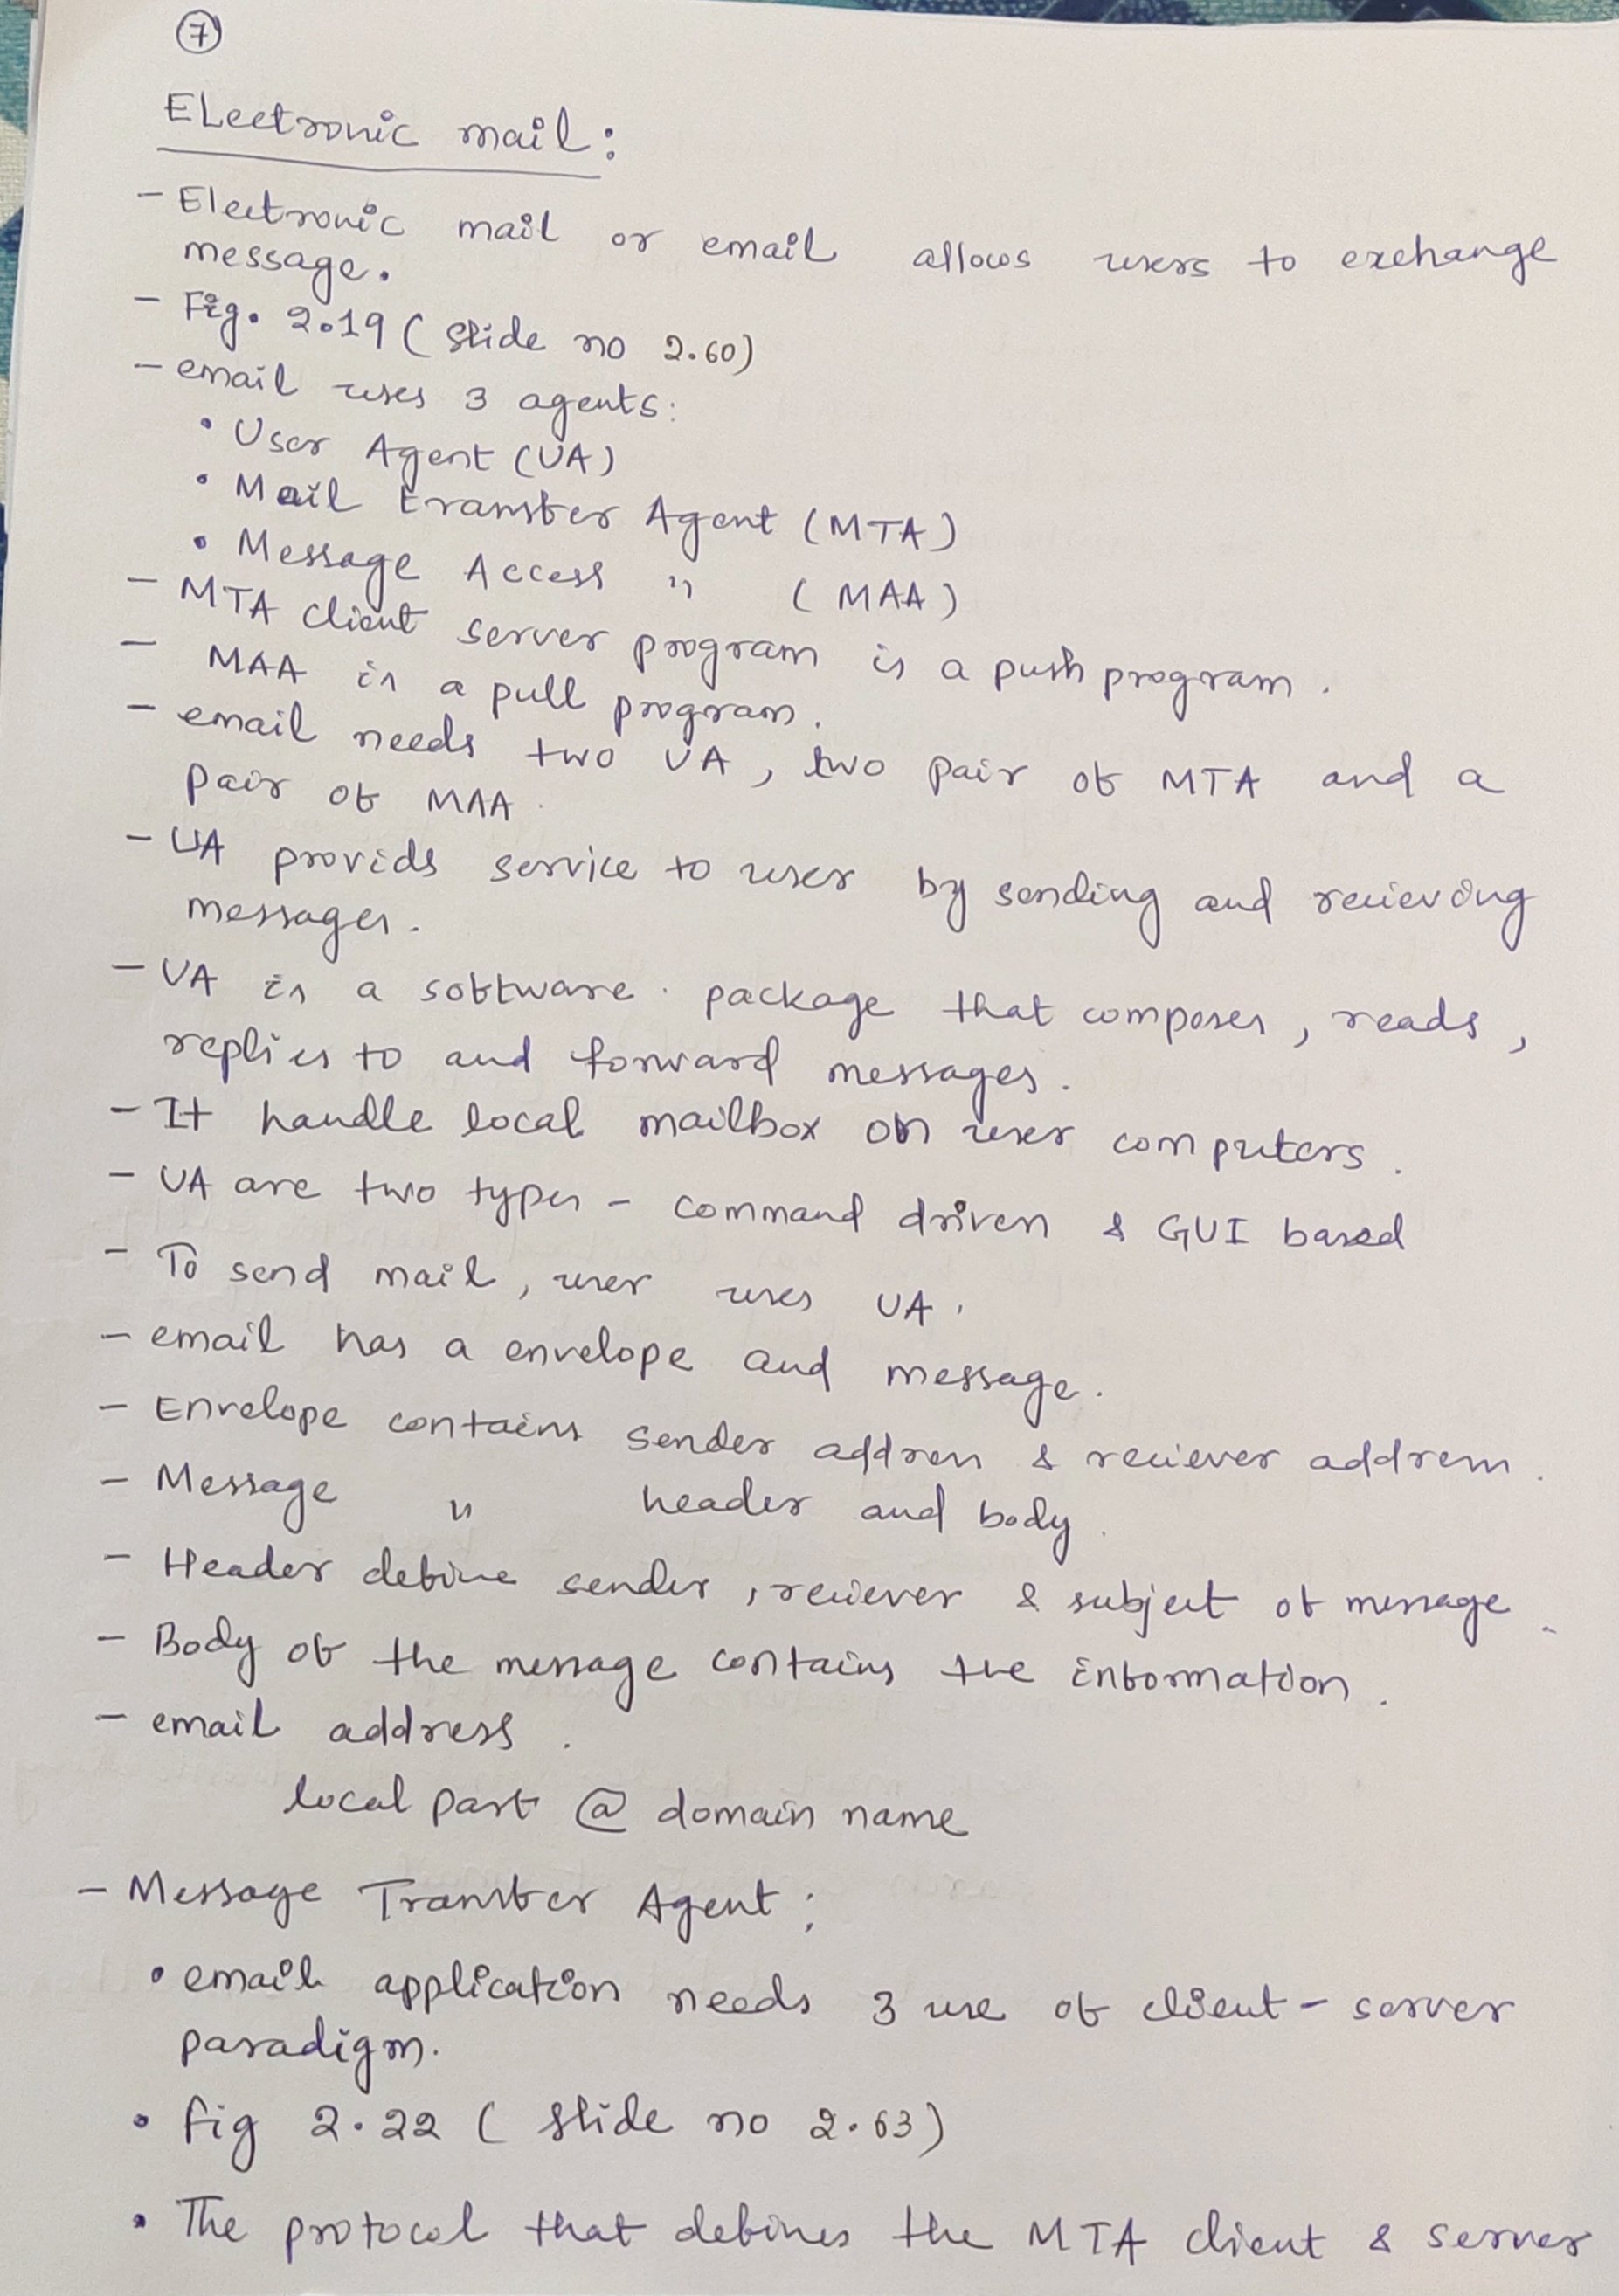 7
Electronic mail:
- Electronic mail or email allows users to exchange
message.
- Fig. 2.19 ( Slide no 2.60)
- email uses 3 agents:
• User Agent (UA)
• Mail transfer Agent (MTA)
• Message Access " (MAA)
- MTA client server program is a push program.
- MAA is a pull program.
- email needs two UA, two pair of MTA and a
pair of MAA.
- UA provids service to user by sending and recieving
messages.
- UA is a software package that composes, reads,
replies to and forward messages.
- It handle local mailbox on user computers.
- UA are two types - command driven & GUI based
- To send mail, user uses UA.
- email has a envelope and message.
- Envelope contains sender address & reciever address.
- Message " header and body.
- Header define sender, reciever & subject of message.
- Body of the message contains the information.
- email address.
local part @ domain name
- Message Transfer Agent:
• email application needs 3 use of client-server
paradigm.
• fig 2.22 ( Slide no 2.63)
• The protocol that defines the MTA client & server